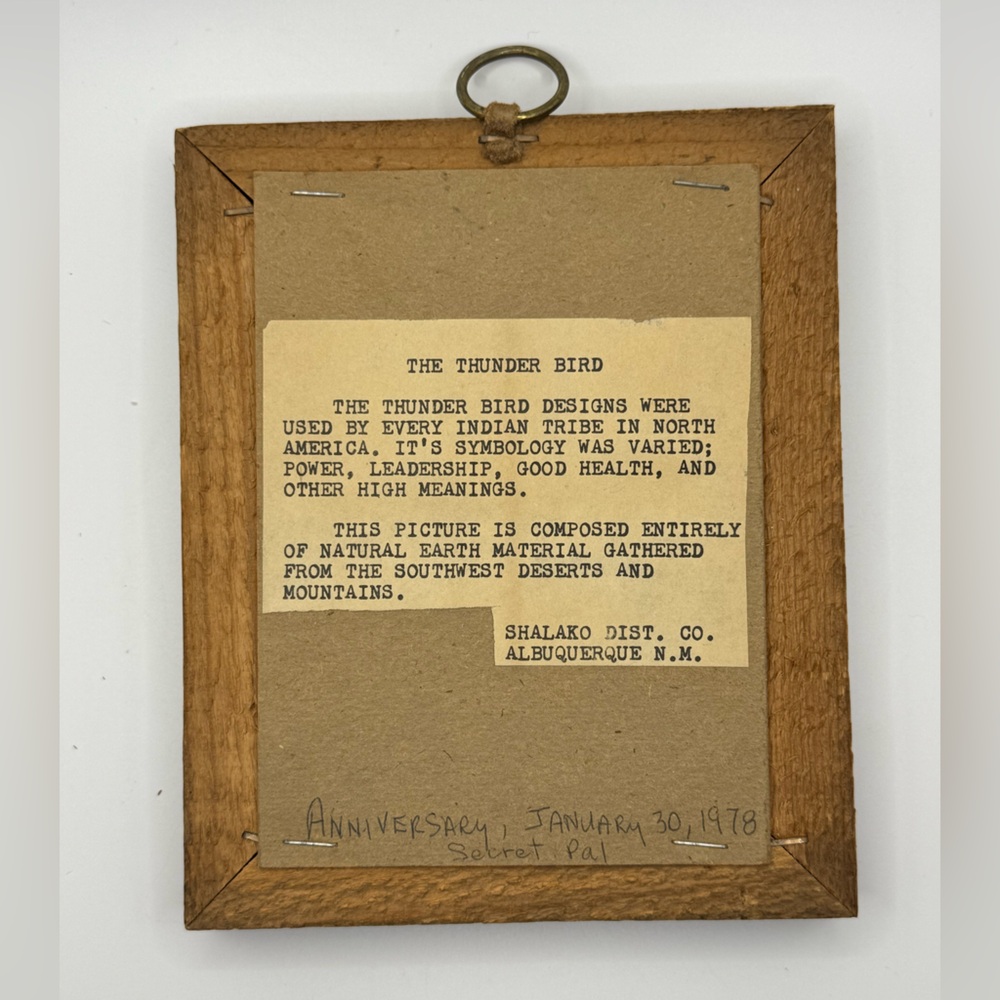 THE THUNDER BIRD
THE THUNDER BIRD DESIGNS WERE
USED BY EVERY INDIAN TRIBE IN NORTH
AMERICA. IT'S SYMBOLOGY WAS VARIED;
POWER, LEADERSHIP, GOOD HEALTH, AND
OTHER HIGH MEANINGS.
THIS PICTURE IS COMPOSED ENTIRELY
OF NATURAL EARTH MATERIAL GATHERED
FROM THE SOUTHWEST DESERTS AND
MOUNTAINS.
SHALAKO DIST. CO.
ALBUQUERQUE N.M.
ANNIVERSARY, JANUARY 30, 1978
Secret Pal